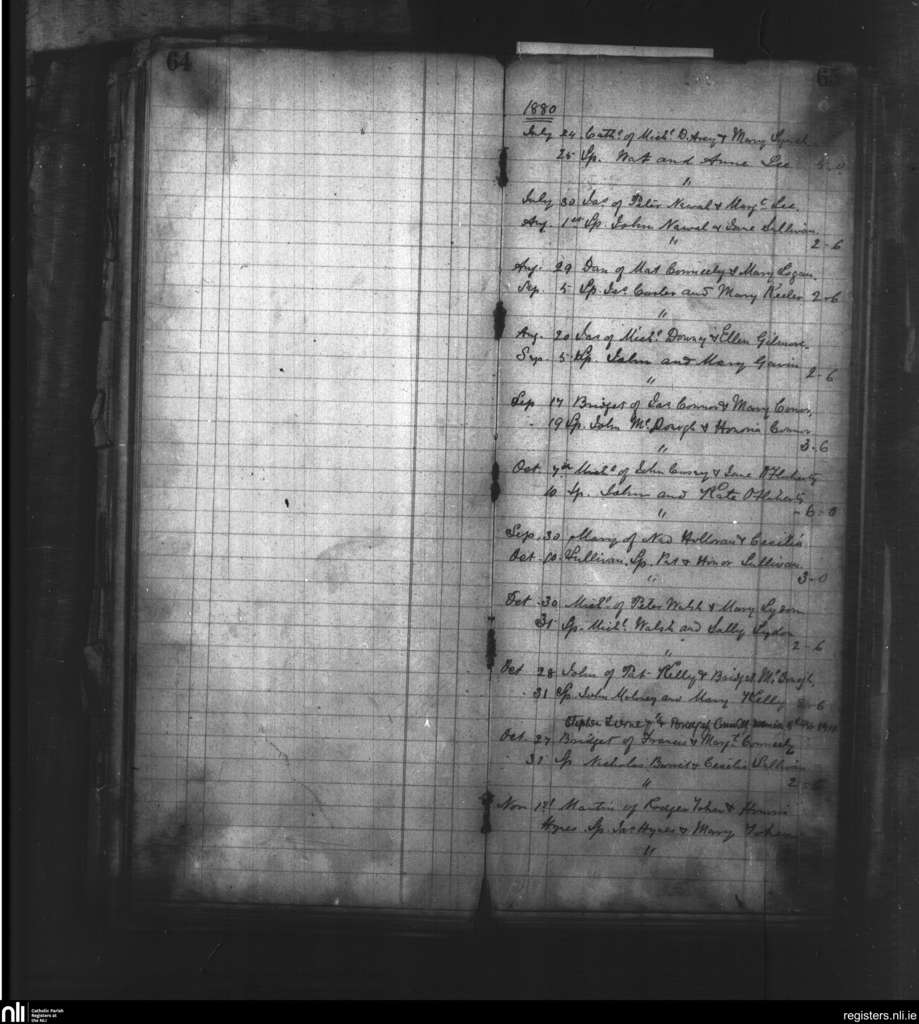 64
65
1880
July 24 Cathe. of Michl. D. & Mary Lynch
25 Sp. Wat and Anne Lee
"
July 30 Jas. of Peter Newal & Margt. Lee.
Aug. 1st Sp. John Nawal & Jane Sullivan.
" 2-6
Aug. 29 Dan of Mat Conneely & Mary Logan.
Sep 5 Sp. Jas. Carter and Mary Keeler 2-6
"
Aug. 20 Jas of Michl. Downy & Ellen Gilmore.
Sep. 5 Sp. John and Mary Gavin
" 2-6
Sep 17 Bridget of Jas Connor & Mary Conor,
" 19 Sp. John McDonogh & Honoria Connor
" 3-6
Oct 7th Michl. of John & Jane O'Flaherty
10 Sp. John and Kate O'Flaherty
" -6-0
Sep. 30 Mary of Ned Holloran & Cecilia
Oct 10 Sullivan. Sp. Pat & Honor Sullivan.
" 3-0
Oct 30 Michl. of Peter Walsh & Mary Lydon
31 Sp. Michl. Walsh and Sally Lydon
" 2-6
Oct 28 John of Pat Kelly & Bridget McDonogh,
" 31 Sp. John and Mary Kelly -6
Oct 27 Bridget of Francis & Margt. Conneely
" 31 Sp Nicholas & Cecilia Sullivan
" 2-6
Nov 1st Martin of Rodger & Honoria
Hynes Sp. Jas Hynes & Mary
"
nli Catholic Parish
Registers at
the NLI
registers.nli.ie